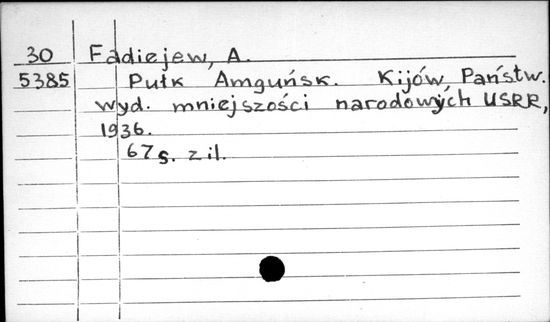 30 Fadiejew, A.
5385 Pułk Amguńsk. Kijów, Państw.
wyd. mniejszości narodowych USRR,
1936.
67 s. z il.